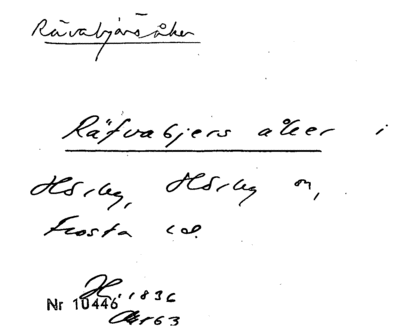 Rävabjärsåker
Räfvabjers åker i
Hörby, Hörby sn,
Frosta hd.
Hf. 1836
Nr 10446
Akt 63